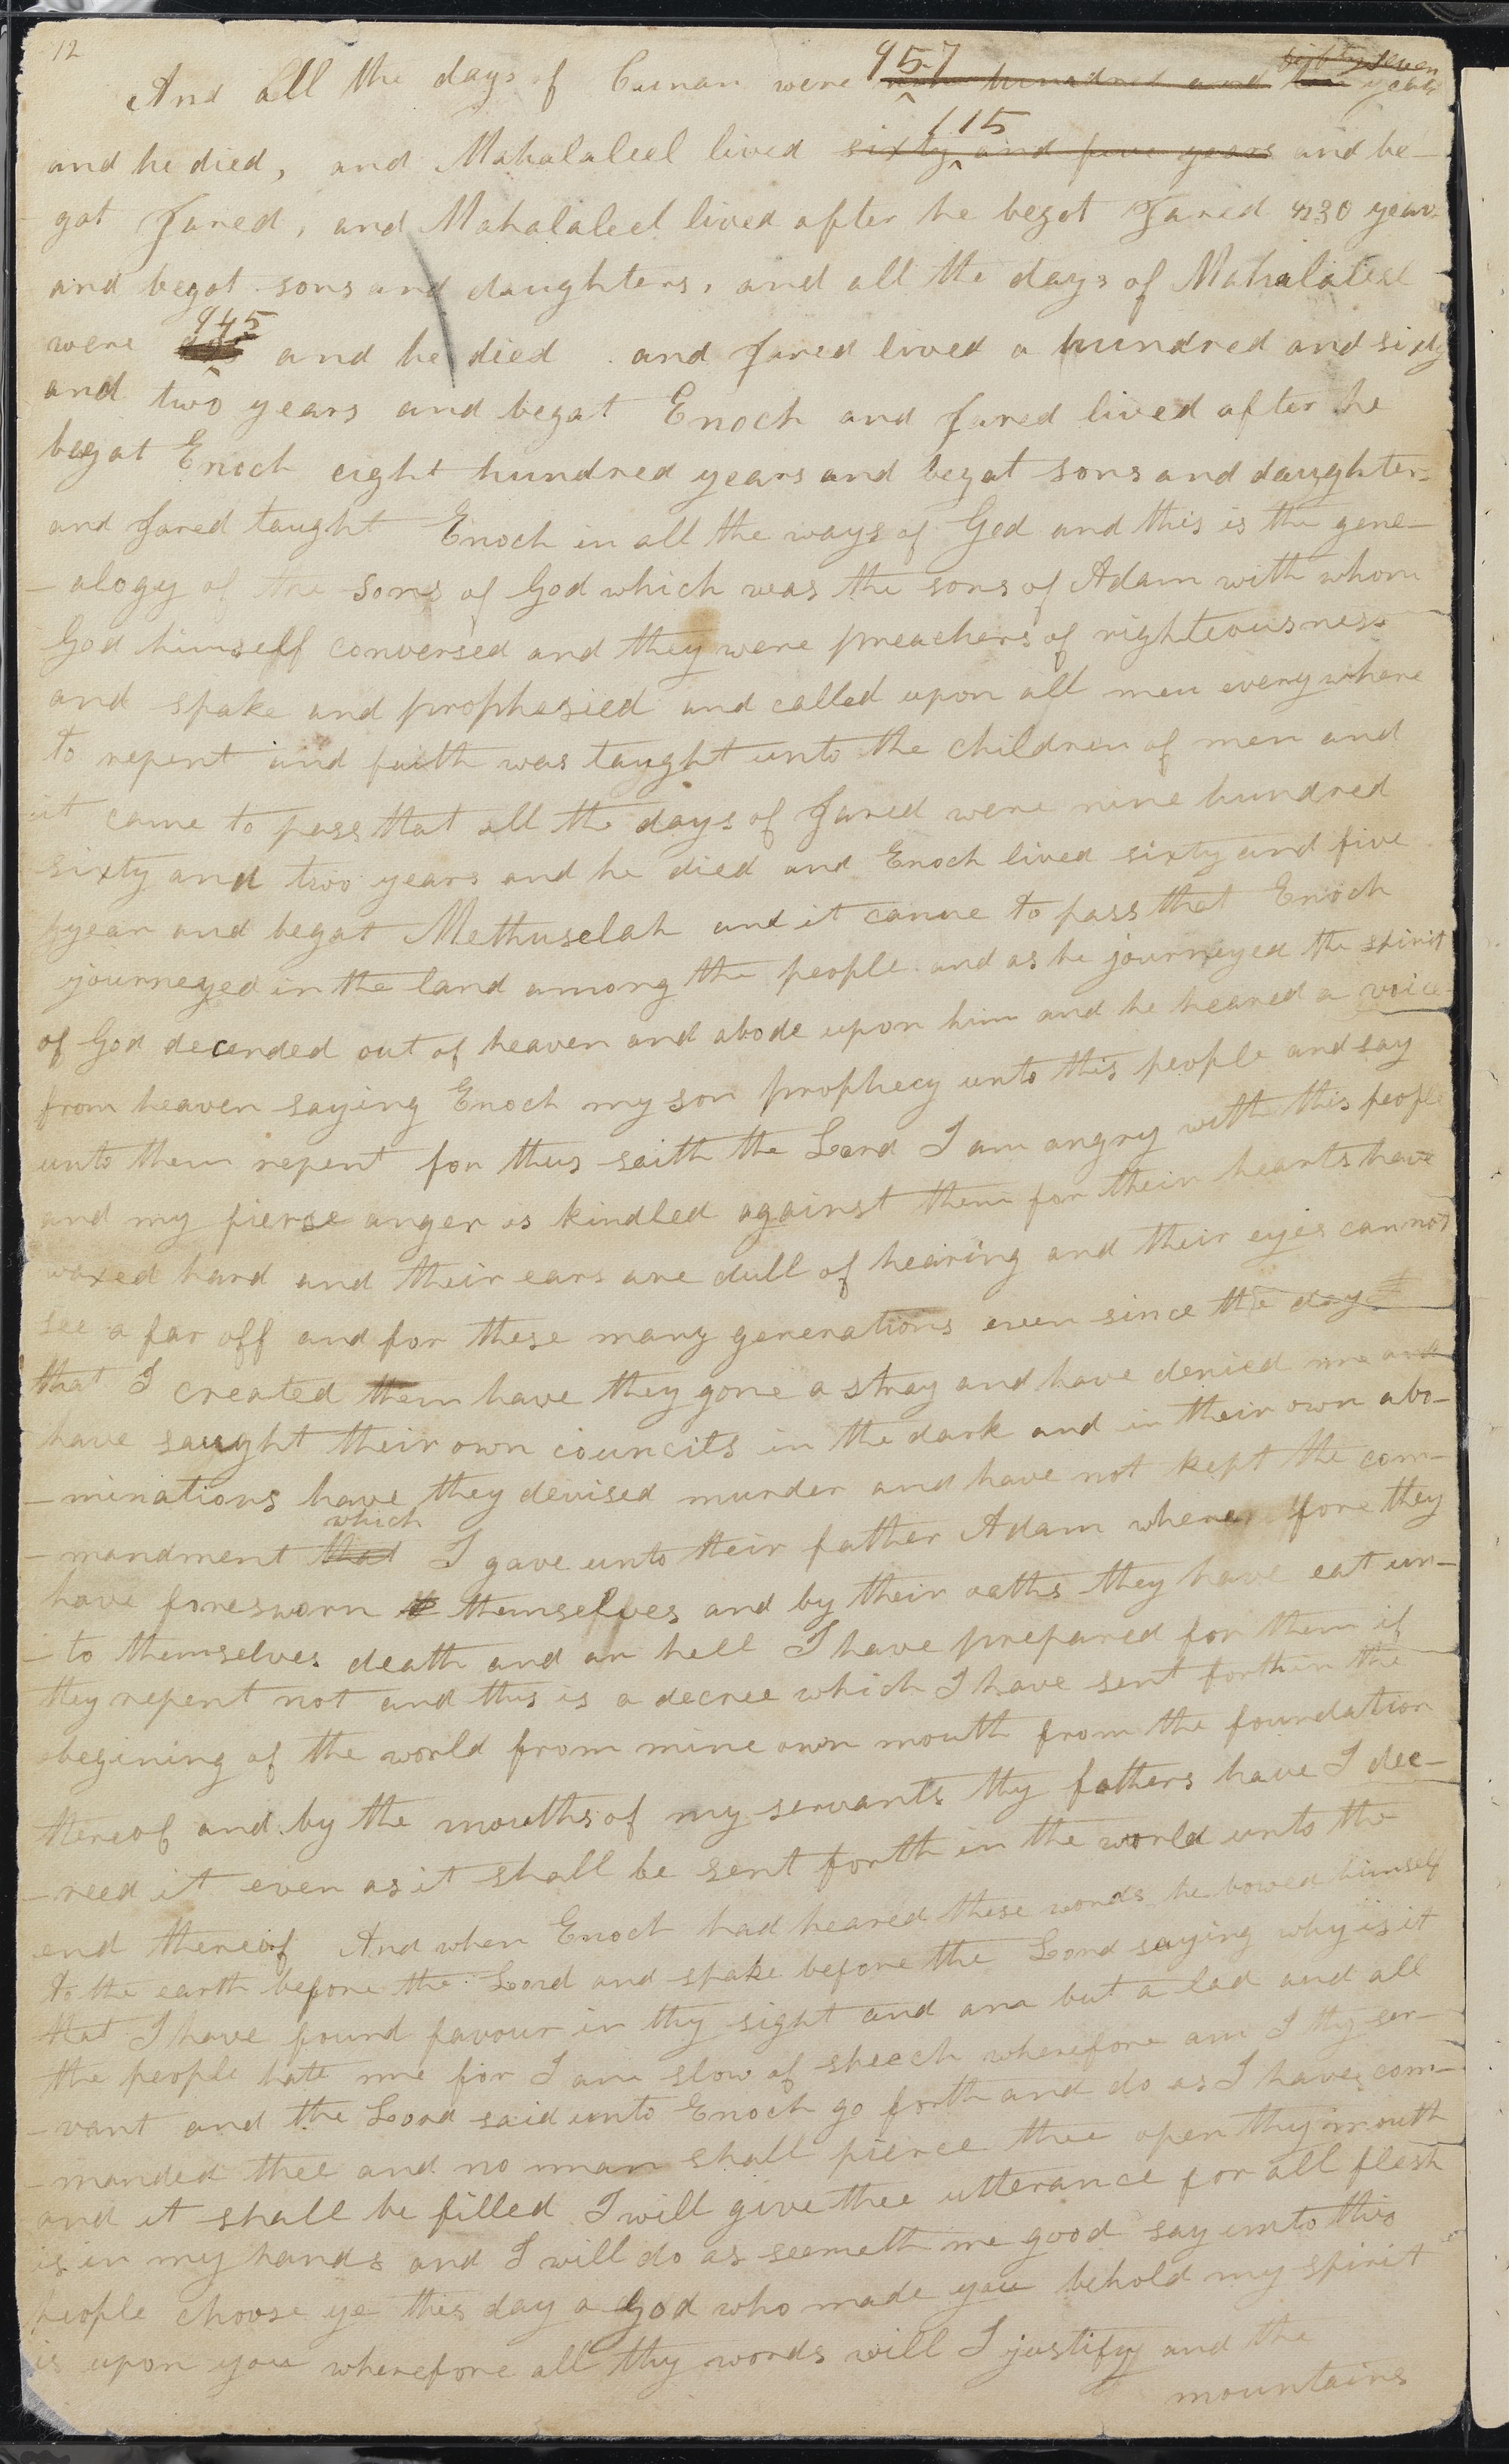 12
And all the days of Cainan were 957 nine hundred and ten eighty seven years
and he died, and Mahalaleel lived 115 sixty and five years and be-
got Jared, and Mahalaleel lived after he begot Jared 830 years
and begot sons and daughters, and all the days of Mahalaleel
were 945 and he died. and Jared lived a hundred and sixty
and two years and begat Enoch and Jared lived after he
begat Enoch eight hundred years and begat sons and daughters
and Jared taught Enoch in all the ways of God and this is the gene-
-alogy of the sons of God which was the sons of Adam with whom
God himself conversed and they were preachers of righteousness
and spake and prophesied and called upon all men everywhere
to repent and faith was taught unto the children of men and
it came to pass that all the days of Jared were nine hundred
sixty and two years and he died and Enoch lived sixty and five
year and begat Methuselah and it came to pass that Enoch
journeyed in the land among the people and as he journeyed the spirit
of God decended out of heaven and abode upon him and he heared a voice
from heaven saying Enoch my son prophecy unto this people and say
unto them repent for thus saith the Lord I am angry with this people
and my fierce anger is kindled against them for their hearts have
waxed hard and their ears are dull of hearing and their eyes cannot
see a far off and for these many generations even since the day
that I created them have they gone a stray and have denied me and
have saught their own councils in the dark and in their own abo-
-minations have they devised murder and have not kept the com-
which
-mandment that I gave unto their father Adam where fore they
have foresworn themselves and by their oaths they have eat un-
-to themselves death and an hell I have prepared for them if
they repent not and this is a decree which I have sent forth in the
begining of the world from mine own mouth from the foundation
thereof and by the mouths of my servants thy fathers have I dec-
-reed it even as it shall be sent forth in the world unto the
end thereof And when Enoch had heared these words he bowed himself
to the earth before the Lord and spake before the Lord saying why is it
that I have found favour in thy sight and am but a lad and all
the people hate me for I am slow of speech wherefore am I thy ser-
-vant and the Lord said unto Enoch go forth and do as I have com-
-manded thee and no man shall pierce thee open thy mouth
and it shall be filled I will give thee utterance for all flesh
is in my hands and I will do as seemeth me good say unto this
people choose ye this day a God who made you behold my spirit
is upon you wherefore all thy words will I justify and the
mountains